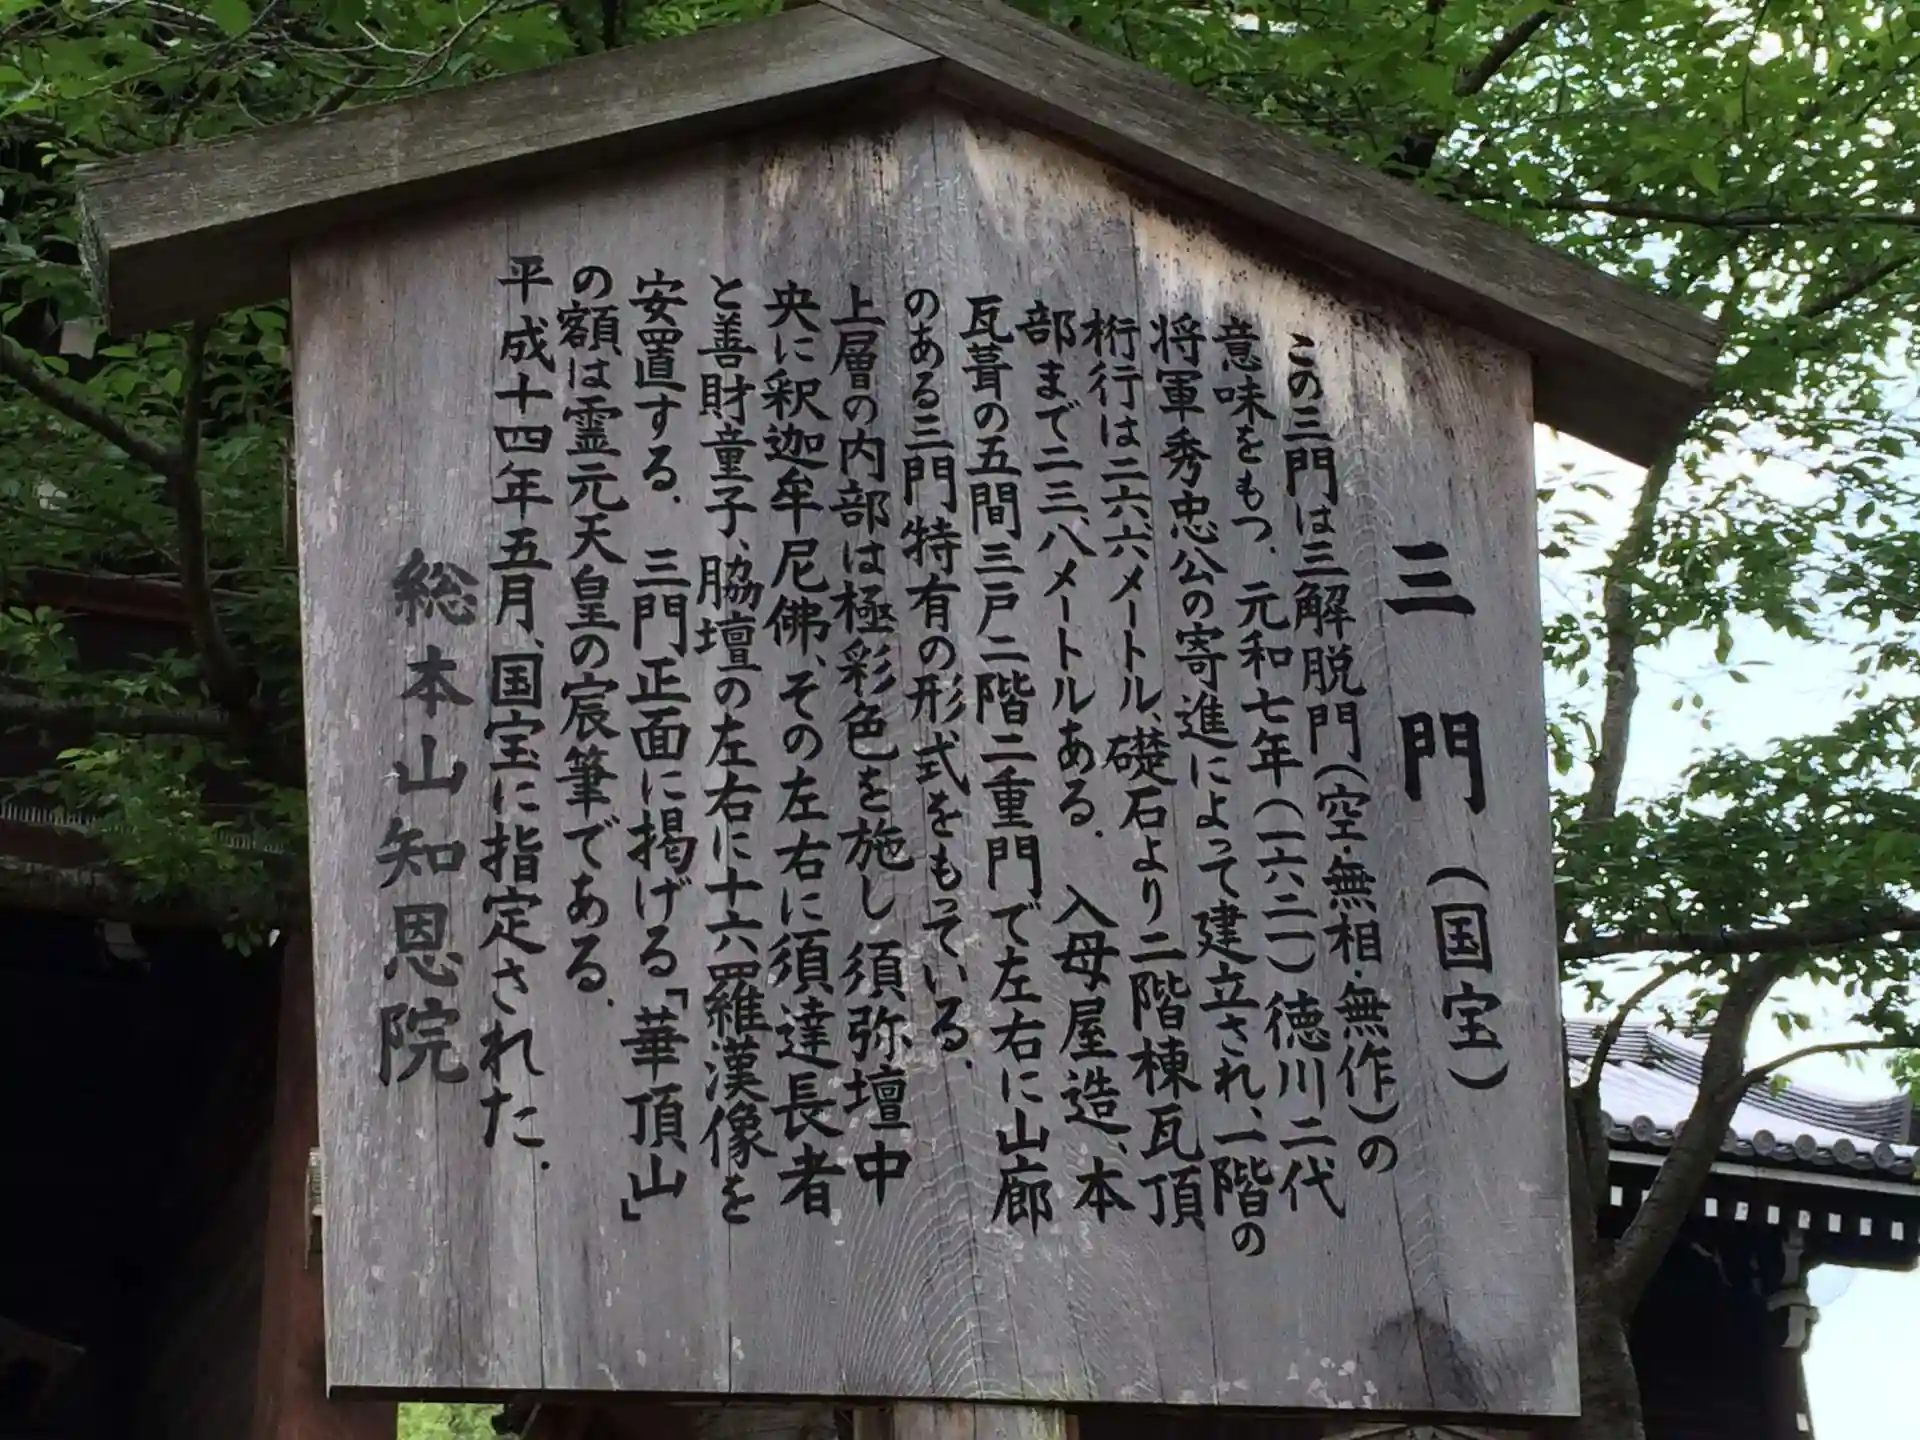 三門（国宝）
この三門は三解脱門（空・無相・無作）の
意味をもつ．元和七年（一六二一）徳川二代
将軍秀忠公の寄進によって建立され、一階の
桁行は二六、六メートル、礎石より二階棟瓦頂
部まで二三、八メートルある．入母屋造、本
瓦葺の五間三戸二階二重門で左右に山廊
のある三門特有の形式をもっている．
上層の内部は極彩色を施し須弥壇中
央に釈迦牟尼佛、その左右に須達長者
と善財童子、脇壇の左右に十六羅漢像を
安置する．三門正面に掲げる「華頂山」
の額は霊元天皇の宸筆である．
平成十四年五月、国宝に指定された．
総本山知恩院